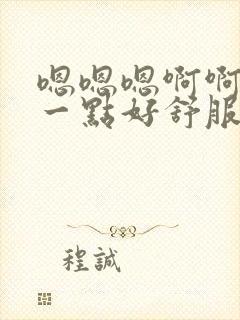 嗯嗯嗯啊啊
一點好舒服
程誠